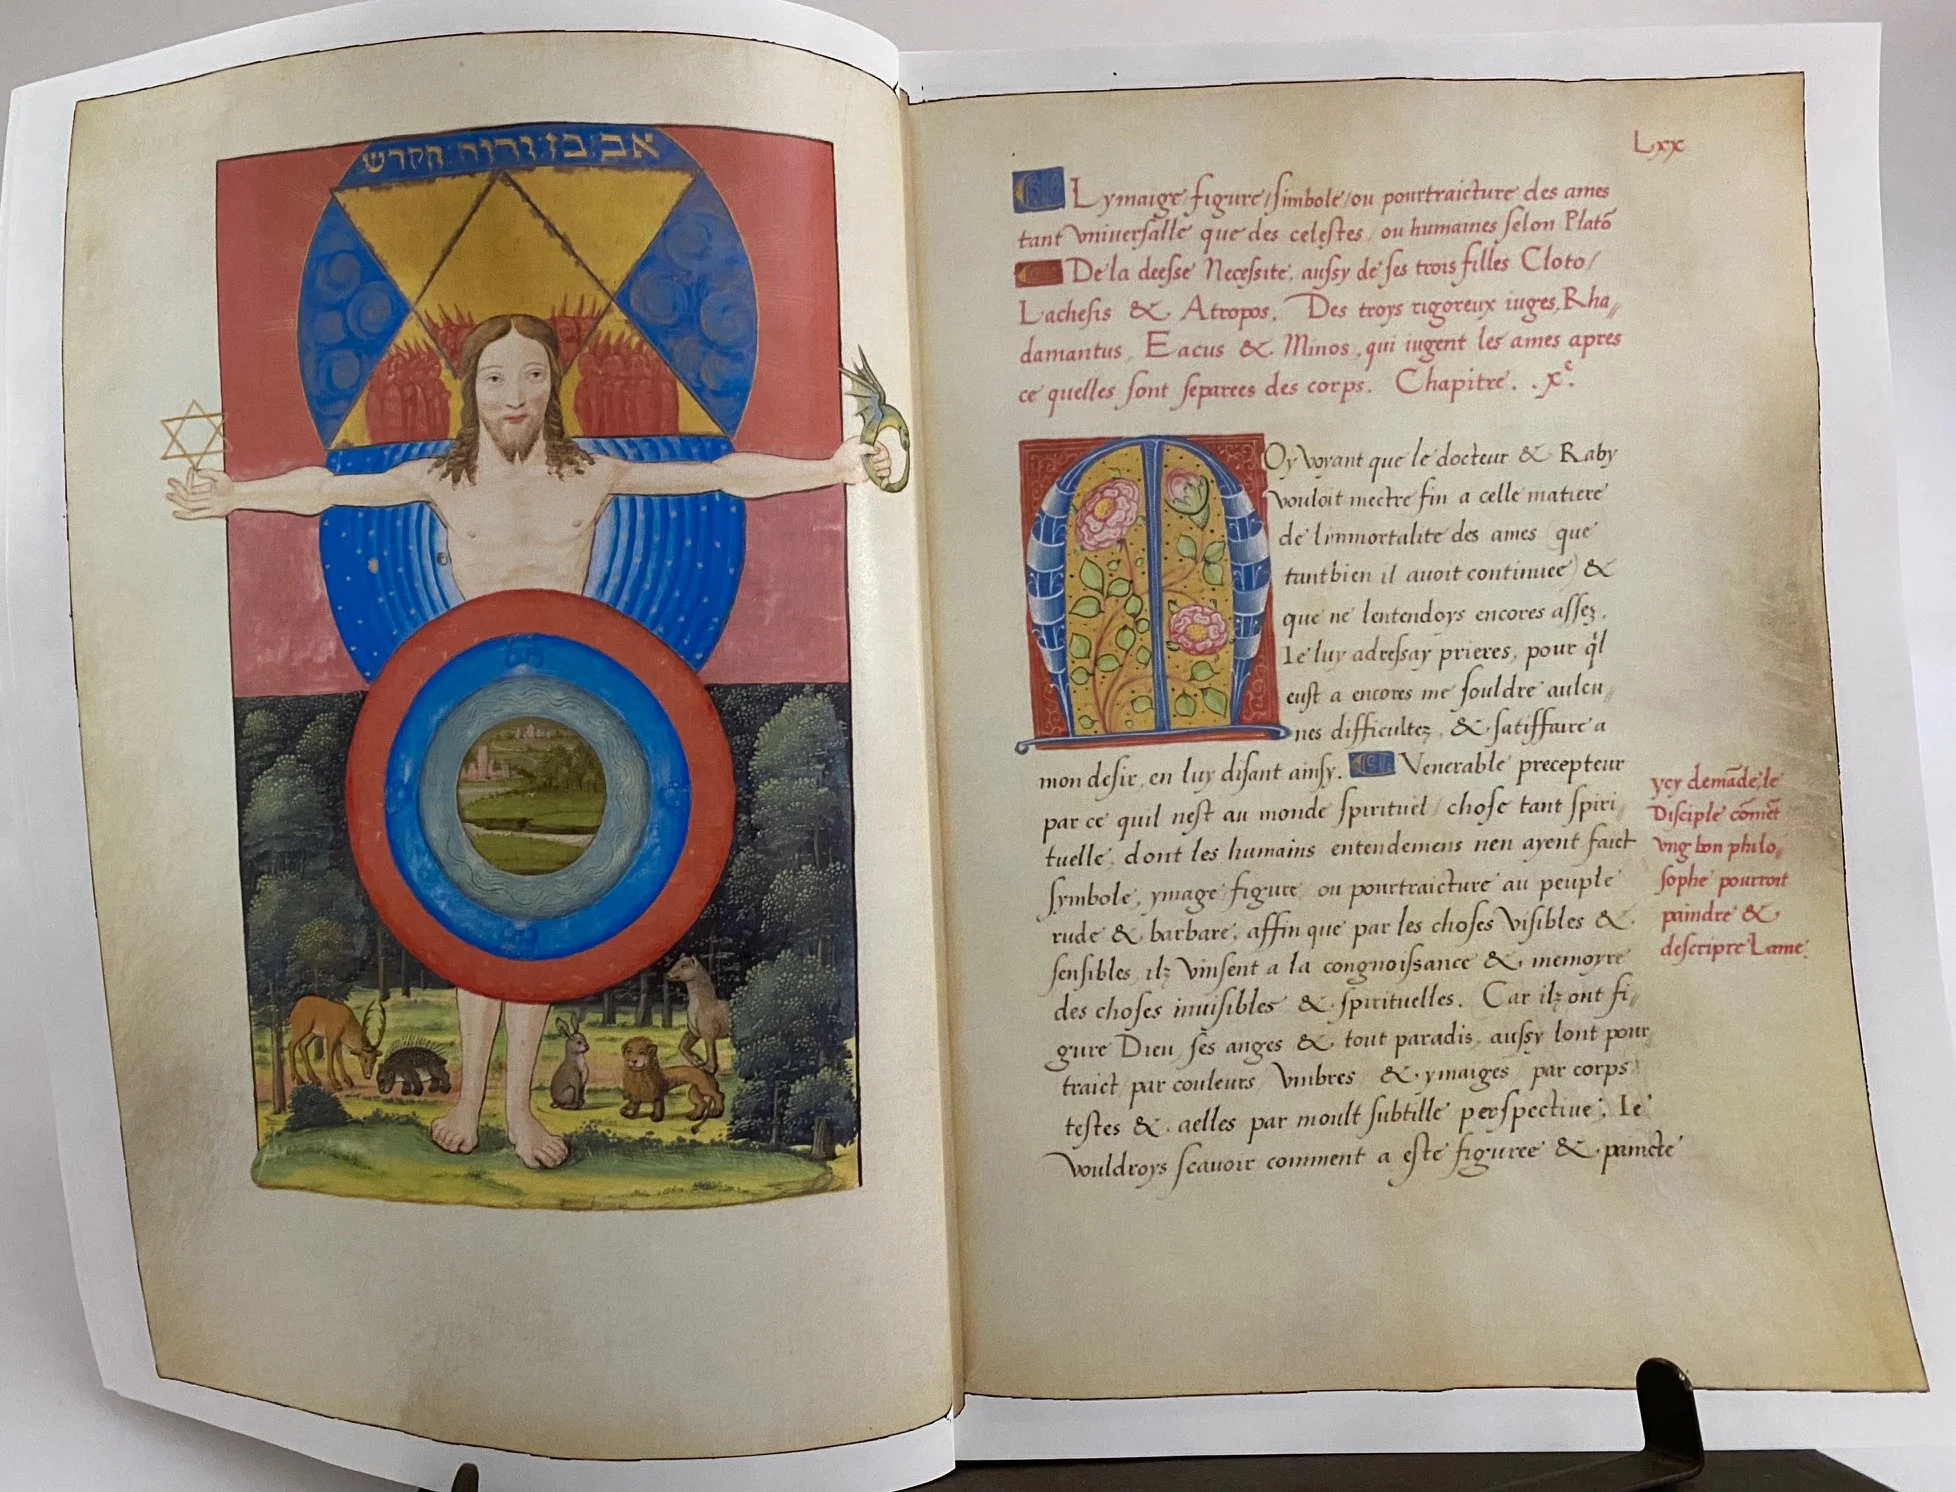 אב בן ורוח הקדש
Lxx
Lymaige figure / simbole / ou pourtraicture des ames
tant vniverselle que des celestes / ou humaines selon Platõ
De la deesse Necessite, aussy de ses trois filles Cloto /
Lachesis & Atropos, Des troys rigoreux iuges, Rha„
damantus, Eacus & Minos, qui iugent les ames apres
ce quelles sont separees des corps. Chapitre. .xᵉ.
MOy voyant que le docteur & Raby
vouloit mectre fin a celle matiere
de limmortalite des ames que
tant bien il auoit continuee) &
que ne lentendoys encores assez,
Ie luy adressay prieres, pour q̃l
eust a encores me souldre aulcu„
nes difficultez, & satiffaire a
mon desir, en luy disant ainsy. Venerable precepteur
par ce quil nest au monde spirituel / chose tant spiri„
tuelle, dont les humains entendemens nen ayent faict
symbole, ymage figure, ou pourtraicture au peuple
rude & barbare, affin que par les choses visibles &
sensibles, ilz vinsent a la congnoissance & memoyre
des choses inuisibles & spirituelles. Car ilz ont fi„
gure Dieu, ses anges & tout paradis, aussy lont pour
traict par couleurs vmbres & ymaiges par corps
testes & aelles par moult subtille perspectiue; Ie
vouldroys scauoir comment a este figuree & paincte
ycy demãde le
Disciple cõmẽt
vng bon philo„
sophe pourroit
paindre &
descripre Lame.